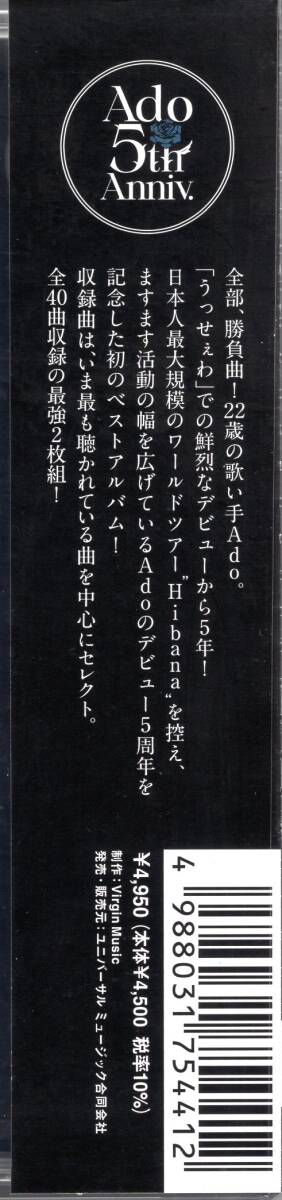 Ado
5th
Anniv.
全部、勝負曲！22歳の歌い手Ado。
「うっせぇわ」での鮮烈なデビューから5年！
日本人最大規模のワールドツアー"Hibana"を控え、
ますます活動の幅を広げているAdoのデビュー5周年を
記念した初のベストアルバム！
収録曲は、いま最も聴かれている曲を中心にセレクト。
全40曲収録の最強2枚組！
4 988031 754412
¥4,950（本体¥4,500 税率10%）
制作：Virgin Music
発売・販売元：ユニバーサル ミュージック合同会社